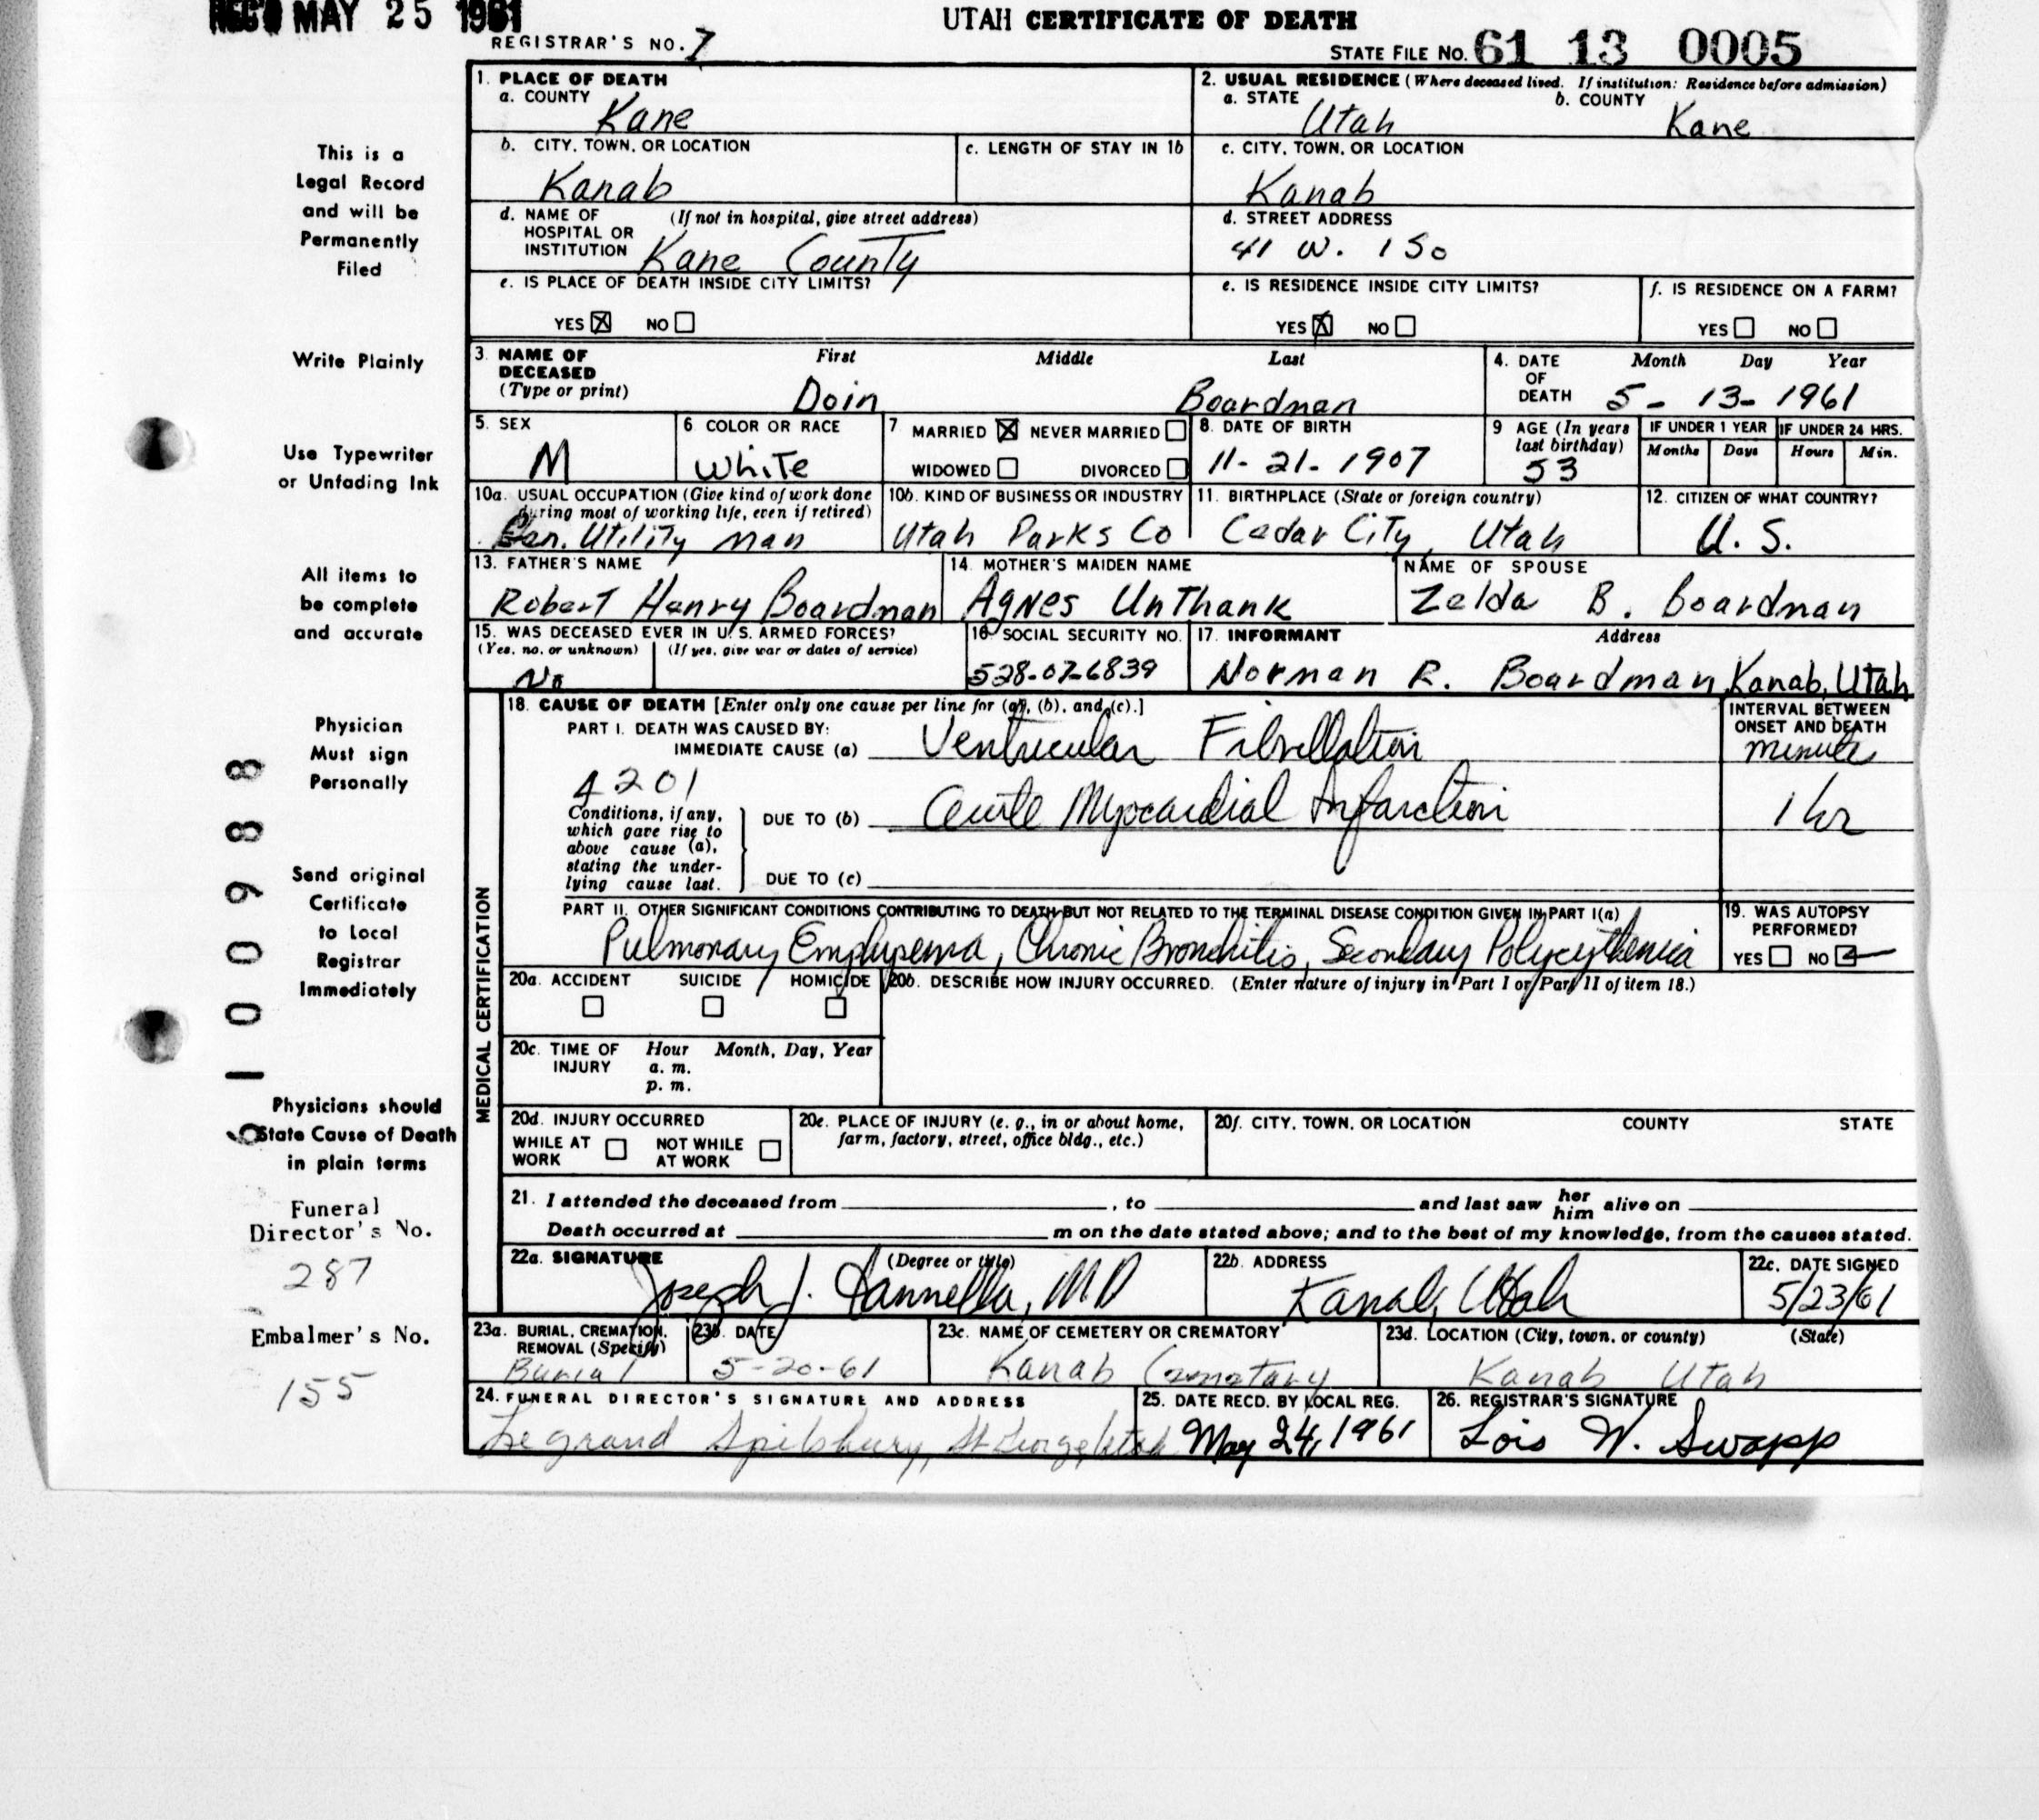 REC'D MAY 25 1961
UTAH CERTIFICATE OF DEATH
REGISTRAR'S NO. 7
STATE FILE NO. 61 13 0005
1. PLACE OF DEATH
a. COUNTY
Kane
2. USUAL RESIDENCE (Where deceased lived. If institution: Residence before admission)
a. STATE b. COUNTY
Utah Kane
b. CITY, TOWN, OR LOCATION
Kanab
c. LENGTH OF STAY IN 1b
c. CITY, TOWN, OR LOCATION
Kanab
d. NAME OF (If not in hospital, give street address)
HOSPITAL OR
INSTITUTION Kane County
d. STREET ADDRESS
41 W. 150
e. IS PLACE OF DEATH INSIDE CITY LIMITS?
YES X NO
e. IS RESIDENCE INSIDE CITY LIMITS?
YES X NO
f. IS RESIDENCE ON A FARM?
YES NO
3. NAME OF DECEASED (Type or print)
First Middle Last
Doin Boardman
4. DATE OF DEATH
Month Day Year
5 - 13 - 1961
5. SEX
M
6 COLOR OR RACE
White
7 MARRIED X NEVER MARRIED
WIDOWED DIVORCED
8. DATE OF BIRTH
11-21-1907
9 AGE (In years last birthday)
53
IF UNDER 1 YEAR IF UNDER 24 HRS.
Months Days Hours Min.
10a. USUAL OCCUPATION (Give kind of work done
during most of working life, even if retired)
Gen. Utility man
10b. KIND OF BUSINESS OR INDUSTRY
Utah Parks Co
11. BIRTHPLACE (State or foreign country)
Cedar City, Utah
12. CITIZEN OF WHAT COUNTRY?
U. S.
13. FATHER'S NAME
Robert Henry Boardman
14. MOTHER'S MAIDEN NAME
Agnes UnThank
NAME OF SPOUSE
Zelda B. Boardman
15. WAS DECEASED EVER IN U.S. ARMED FORCES?
(Yes, no, or unknown) (If yes, give war or dates of service)
No
16 SOCIAL SECURITY NO.
528-07-6839
17. INFORMANT Address
Norman R. Boardman, Kanab, Utah
18. CAUSE OF DEATH [Enter only one cause per line for (a), (b), and (c).]
INTERVAL BETWEEN
ONSET AND DEATH
PART I. DEATH WAS CAUSED BY:
IMMEDIATE CAUSE (a) Ventricular Fibrillation
4201
Conditions, if any,
which gave rise to
above cause (a),
stating the under-
lying cause last.
DUE TO (b) Acute Myocardial Infarction 1 hr
DUE TO (c)
PART II. OTHER SIGNIFICANT CONDITIONS CONTRIBUTING TO DEATH BUT NOT RELATED TO THE TERMINAL DISEASE CONDITION GIVEN IN PART I(a)
Pulmonary Emphysema, Chronic Bronchitis, Secondary Polycythemia
19. WAS AUTOPSY
PERFORMED?
YES NO
MEDICAL CERTIFICATION
20a. ACCIDENT SUICIDE HOMICIDE
20b. DESCRIBE HOW INJURY OCCURRED. (Enter nature of injury in Part I or Part II of item 18.)
20c. TIME OF INJURY
Hour Month, Day, Year
a. m.
p. m.
20d. INJURY OCCURRED
WHILE AT WORK NOT WHILE AT WORK
20e. PLACE OF INJURY (e. g., in or about home,
farm, factory, street, office bldg., etc.)
20f. CITY, TOWN, OR LOCATION COUNTY STATE
21. I attended the deceased from , to and last saw her him alive on
Death occurred at m on the date stated above; and to the best of my knowledge, from the causes stated.
22a. SIGNATURE (Degree or title)
Joseph J. Iannella, MD
22b. ADDRESS
Kanab, Utah
22c. DATE SIGNED
5/23/61
23a. BURIAL, CREMATION,
REMOVAL (Specify)
Burial
23b. DATE
5-20-61
23c. NAME OF CEMETERY OR CREMATORY
Kanab Cemetary
23d. LOCATION (City, town, or county) (State)
Kanab Utah
24. FUNERAL DIRECTOR'S SIGNATURE AND ADDRESS
Legrand Spilsbury, St George, Utah
25. DATE RECD. BY LOCAL REG.
May 24, 1961
26. REGISTRAR'S SIGNATURE
Lois W. Swapp
This is a
Legal Record
and will be
Permanently
Filed
Write Plainly
Use Typewriter
or Unfading Ink
All items to
be complete
and accurate
Physician
Must sign
Personally
Send original
Certificate
to Local
Registrar
Immediately
Physicians should
State Cause of Death
in plain terms
Funeral
Director's No.
287
Embalmer's No.
155